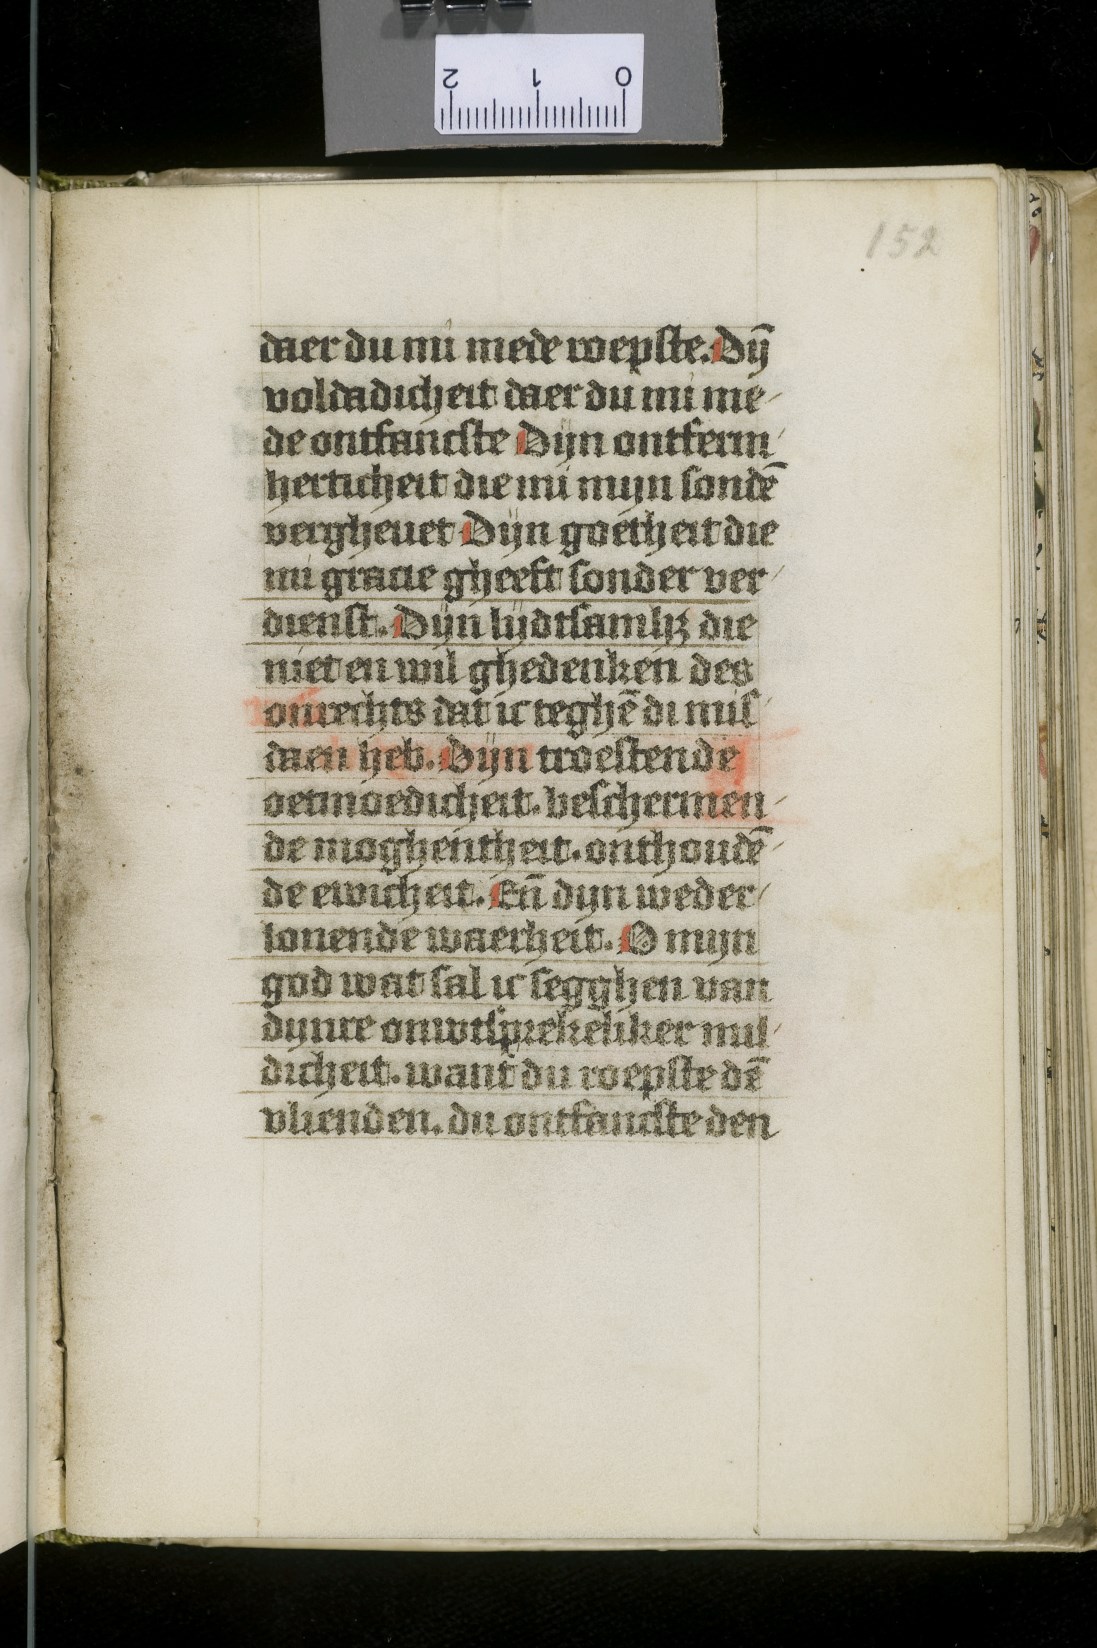 2 1 0
152
daer du mi mede roepste. Dȳ
voldadicheit daer du mi me-
de ontfancste Dijn ontferm-
herticheit die mi mijn sondē
vergheuet Dijn goetheit die
mi gracie gheeft sonder ver-
dienst. Dijn lijdtsamhz die
niet en wil ghedenken des
onrechts dat ic teghē di mis-
daen heb. Dijn troestende
oetmoedicheit. beschermen-
de moghentheit. onthoudē-
de ewicheit. Eñ dijn weder-
lonende waerheit. O mijn
god wat sal ic segghen van
dijnre onwtsprekeliker mil-
dicheit. want du roepste dē
vlienden. du ontfancste den